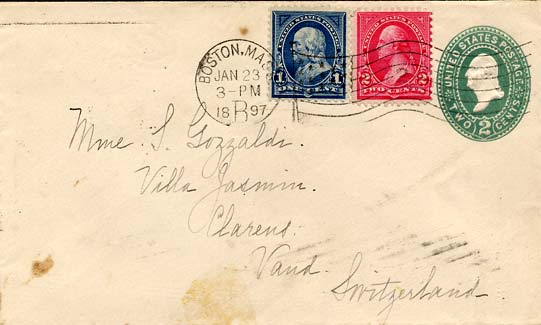 BOSTON, MASS.
JAN 23
3-PM
18 97
B
1 1
ONE CENT
2 2
TWO CENTS
UNITED STATES POSTAGE
TWO 2 CENTS
Mme. S. Gozzaldi.
Villa Jasmin.
Clarens.
Vaud.
Switzerland.